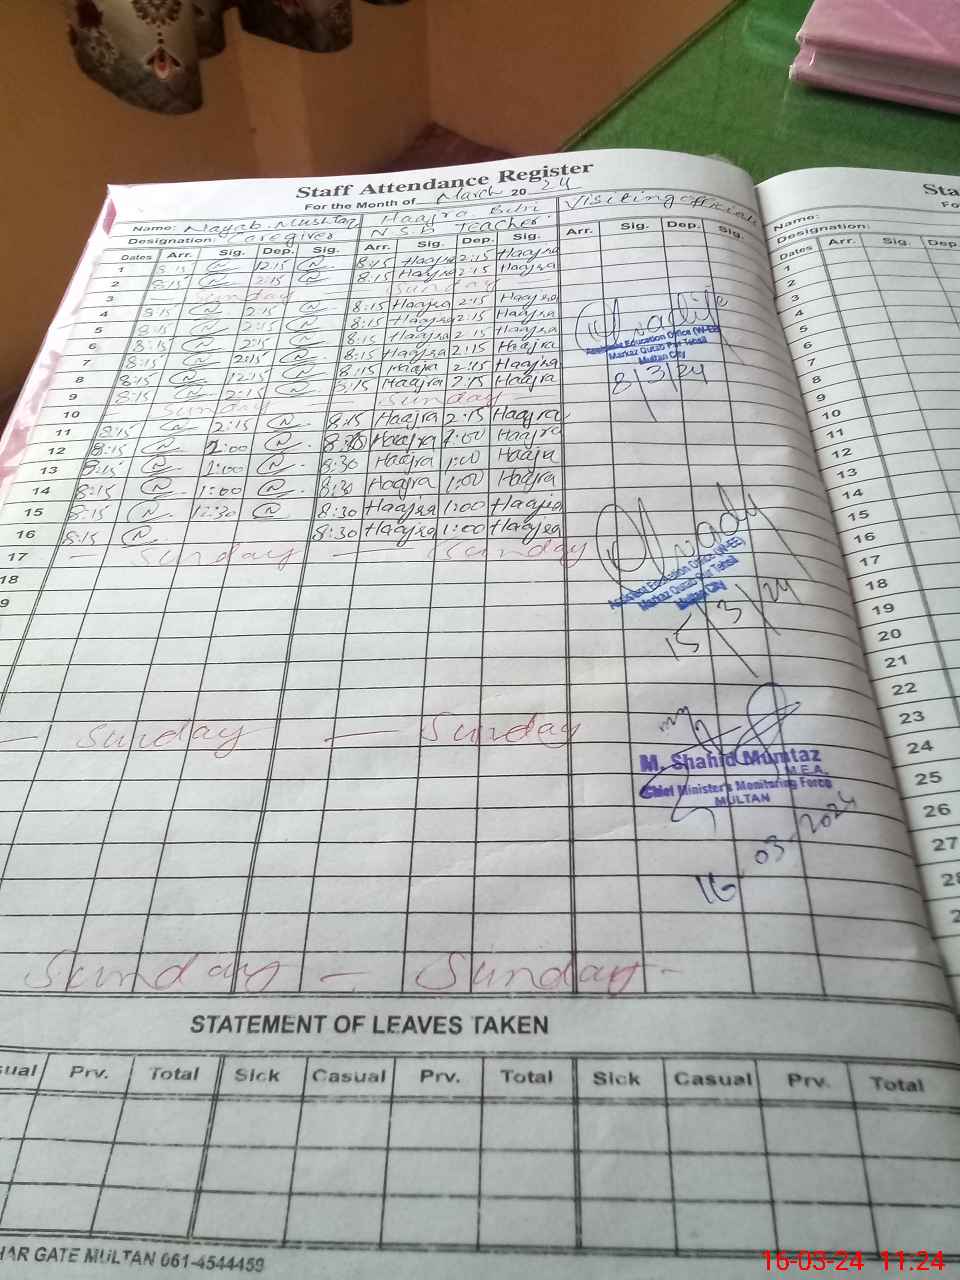 Staff Attendance Register
For the Month of March 20 24
Name: Nayab Mushtaq Haajra Bibi Visiting officials
Designation: Caregiver N.S.B Teacher.
Dates Arr. Sig. Dep. Sig. Arr. Sig. Dep. Sig. Arr. Sig. Dep. Sig.
1 8:15 12:15 8:15 Haajra 2:15 Haajra
2 8:15 2:15 8:15 Haajra 2:15 Haajra
3 — Sunday — Sunday —
4 8:15 2:15 8:15 Haajra 2:15 Haajra
5 8:15 2:15 8:15 Haajra 2:15 Haajra
6 8:15 2:15 8:15 Haajra 2:15 Haajra
7 8:15 2:15 8:15 Haajra 2:15 Haajra
8 8:15 12:15 8:15 Haajra 2:15 Haajra
9 8:15 2:15 8:15 Haajra 2:15 Haajra
10 — Sunday — Sunday —
11 8:15 2:15 8:15 Haajra 2:15 Haajra
12 8:15 1:00 Haajra 1:00 Haajra
13 8:15 1:00 8:30 Haajra 1:00 Haajra
14 8:15 1:00 8:30 Haajra 1:00 Haajra
15 8:15 12:30 8:30 Haajra 1:00 Haajra
16 8:15 8:30 Haajra 1:00 Haajra
17 — Sunday — Sunday
18
9
Assistant Education Officer (W-EE)
Markaz Qutab Pur Tehsil
Multan City
8/3/24
Assistant Education Officer (W-EE)
Markaz Qutab Pur Tehsil
Multan City
15/3/24
— Sunday — Sunday
M. Shahid Mumtaz
M.E.A.
Chief Minister's Monitoring Force
MULTAN
16-03-2024
Sunday — Sunday -
STATEMENT OF LEAVES TAKEN
sual Prv. Total Sick Casual Prv. Total Sick Casual Prv. Total
HAR GATE MULTAN 061-4544459
Sta
Fo
Name:
Designation:
Dates Arr. Sig. Dep
1
2
3
4
5
6
7
8
9
10
11
12
13
14
15
16
17
18
19
20
21
22
23
24
25
26
27
28
2
16-03-24 11:24